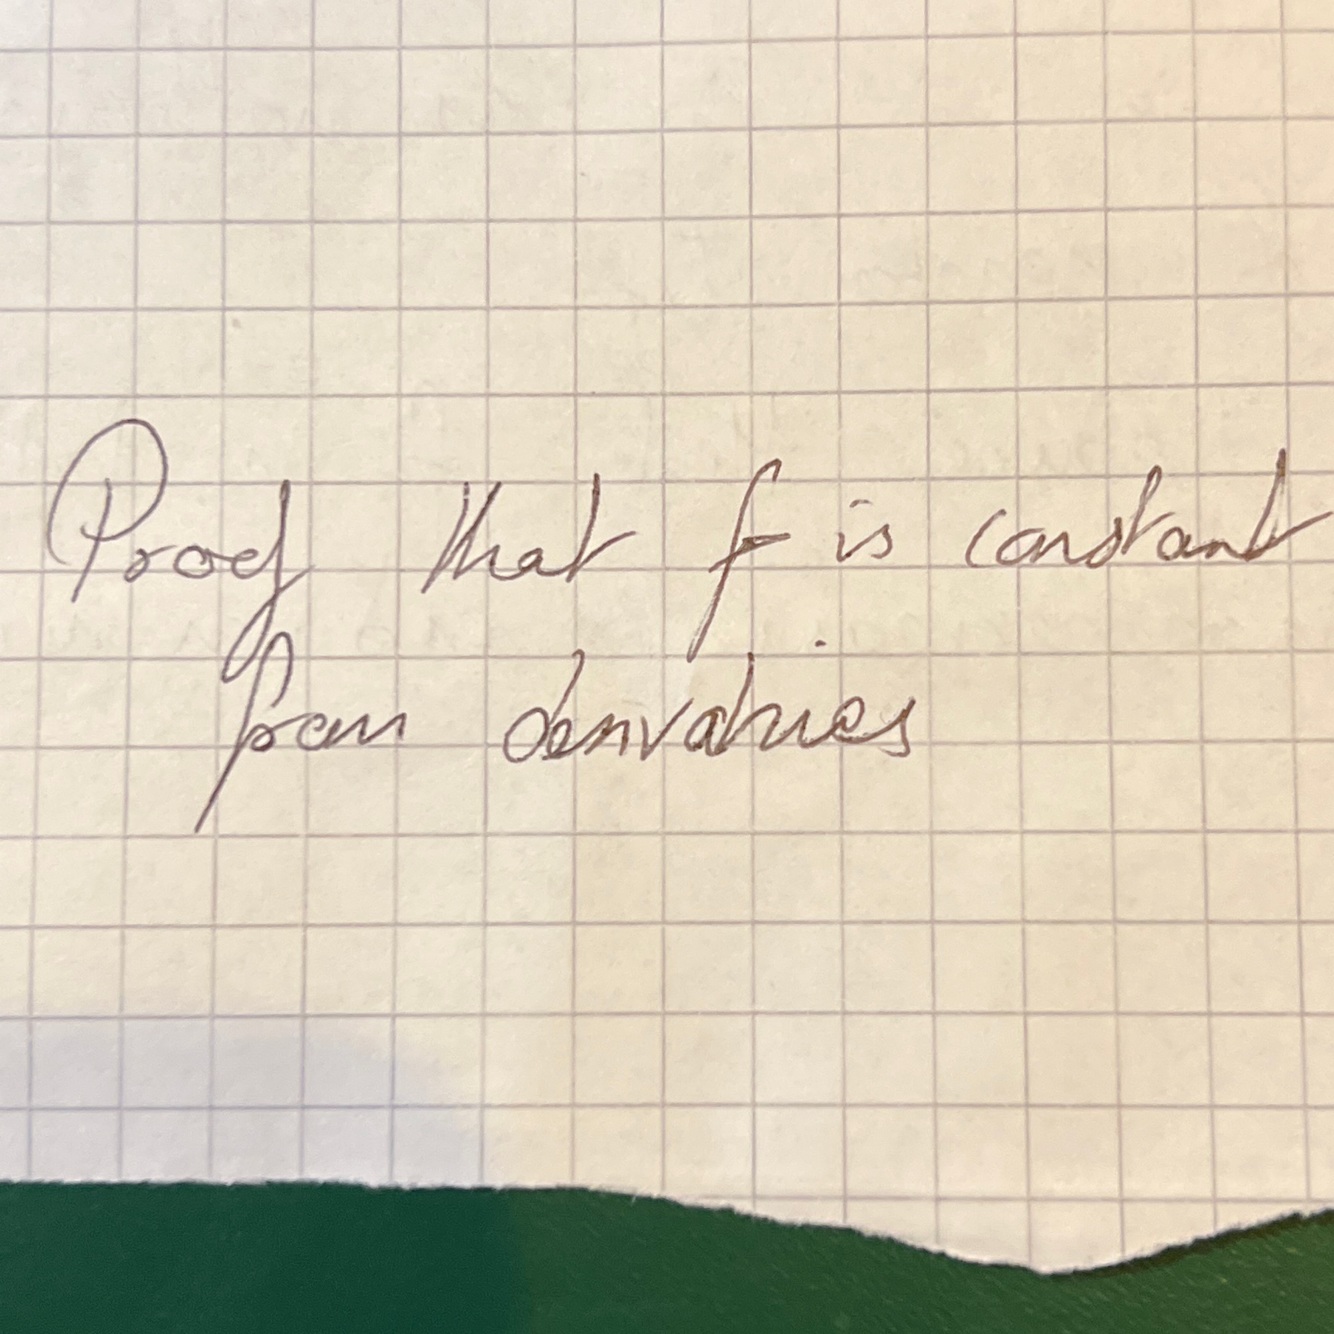 Proof that f is constant
from derivatives